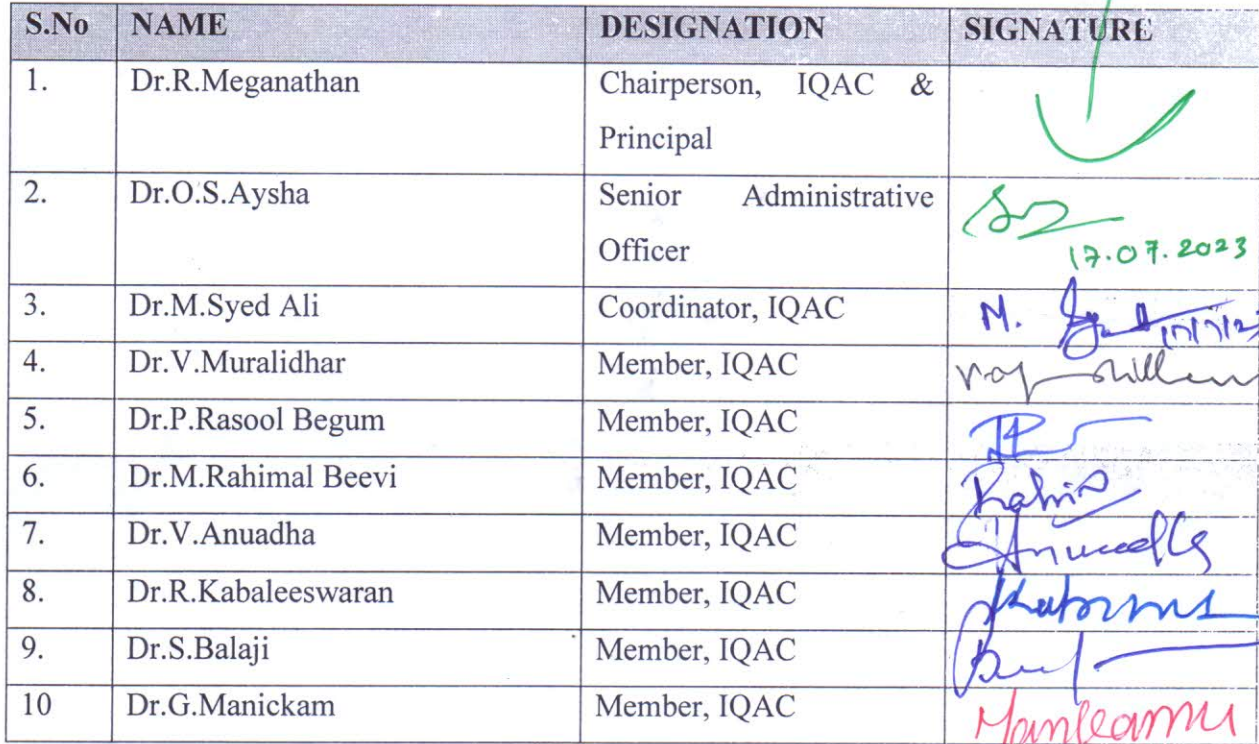 S.No NAME DESIGNATION SIGNATURE
1. Dr.R.Meganathan Chairperson, IQAC &
Principal
2. Dr.O.S.Aysha Senior Administrative
Officer
17.07.2023
3. Dr.M.Syed Ali Coordinator, IQAC M.
4. Dr.V.Muralidhar Member, IQAC
5. Dr.P.Rasool Begum Member, IQAC
6. Dr.M.Rahimal Beevi Member, IQAC
7. Dr.V.Anuadha Member, IQAC
8. Dr.R.Kabaleeswaran Member, IQAC
9. Dr.S.Balaji Member, IQAC
10 Dr.G.Manickam Member, IQAC